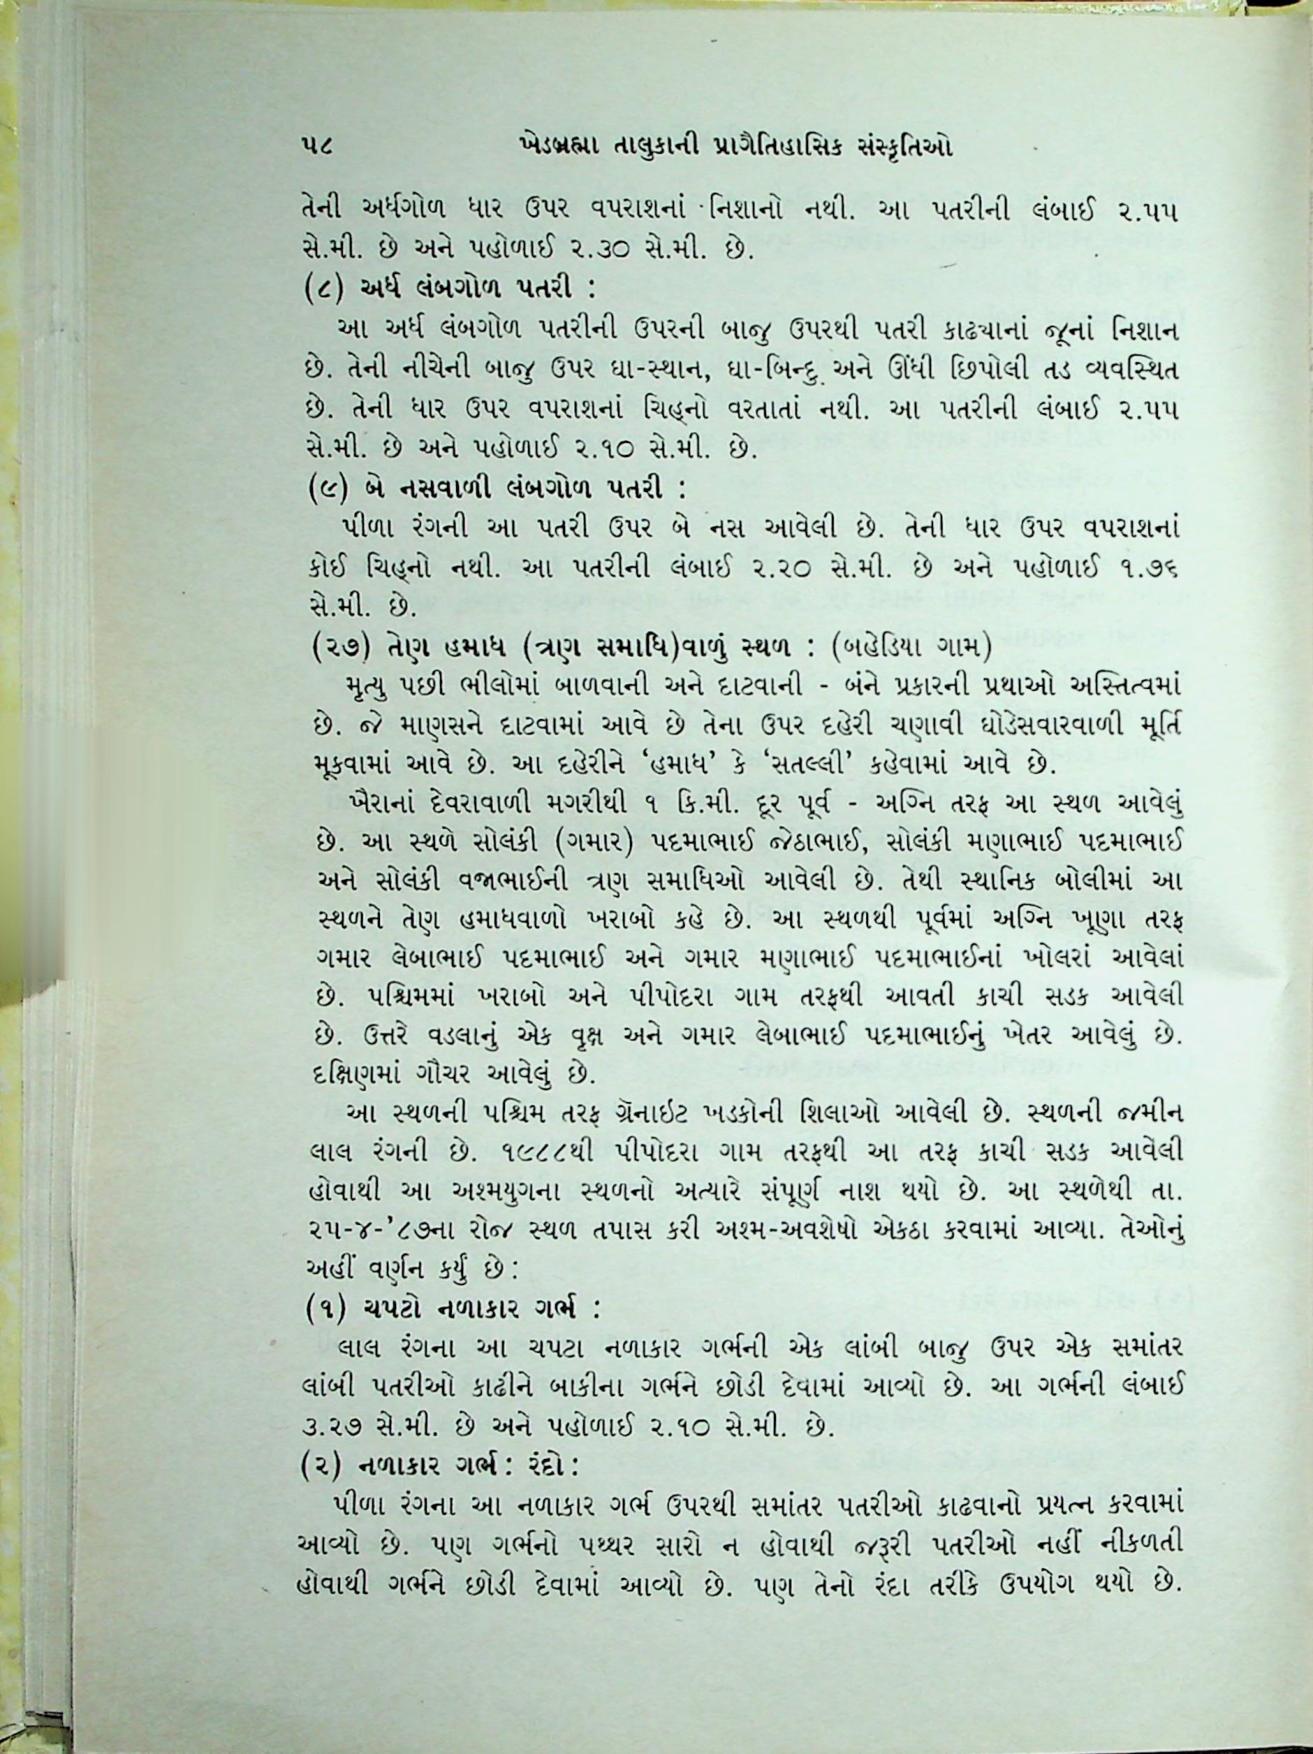 ૫૮ ખેડબ્રહ્મા તાલુકાની પ્રાગૈતિહાસિક સંસ્કૃતિઓ
તેની અર્ધગોળ ધાર ઉપર વપરાશનાં નિશાનો નથી. આ પતરીની લંબાઈ ૨.૫૫
સે.મી. છે અને પહોળાઈ ૨.૩૦ સે.મી. છે.
(૮) અર્ધ લંબગોળ પતરી :
આ અર્ધ લંબગોળ પતરીની ઉપરની બાજુ ઉપરથી પતરી કાઢ્યાનાં જૂનાં નિશાન
છે. તેની નીચેની બાજુ ઉપર ઘા-સ્થાન, ઘા-બિન્દુ અને ઊંધી છિપોલી તડ વ્યવસ્થિત
છે. તેની ધાર ઉપર વપરાશનાં ચિહ્નો વરતાતાં નથી. આ પતરીની લંબાઈ ૨.૫૫
સે.મી. છે અને પહોળાઈ ૨.૧૦ સે.મી. છે.
(૯) બે નસવાળી લંબગોળ પતરી :
પીળા રંગની આ પતરી ઉપર બે નસ આવેલી છે. તેની ધાર ઉપર વપરાશનાં
કોઈ ચિહ્નો નથી. આ પતરીની લંબાઈ ૨.૨૦ સે.મી. છે અને પહોળાઈ ૧.૭૬
સે.મી. છે.
(૨૭) તેણ હમાધ (ત્રણ સમાધિ)વાળું સ્થળ : (બહેડિયા ગામ)
મૃત્યુ પછી ભીલોમાં બાળવાની અને દાટવાની - બંને પ્રકારની પ્રથાઓ અસ્તિત્વમાં
છે. જે માણસને દાટવામાં આવે છે તેના ઉપર દહેરી ચણાવી ઘોડેસવારવાળી મૂર્તિ
મૂકવામાં આવે છે. આ દહેરીને ‘હમાધ’ કે ‘સતલ્લી’ કહેવામાં આવે છે.
ખૈરાનાં દેવરાવાળી મગરીથી ૧ કિ.મી. દૂર પૂર્વ - અગ્નિ તરફ આ સ્થળ આવેલું
છે. આ સ્થળે સોલંકી (ગમાર) પદમાભાઈ જેઠાભાઈ, સોલંકી મણાભાઈ પદમાભાઈ
અને સોલંકી વજાભાઈની ત્રણ સમાધિઓ આવેલી છે. તેથી સ્થાનિક બોલીમાં આ
સ્થળને તેણ હમાધવાળો ખરાબો કહે છે. આ સ્થળથી પૂર્વમાં અગ્નિ ખૂણા તરફ
ગમાર લેબાભાઈ પદમાભાઈ અને ગમાર મણાભાઈ પદમાભાઈનાં ખોલરાં આવેલાં
છે. પશ્ચિમમાં ખરાબો અને પીપોદરા ગામ તરફથી આવતી કાચી સડક આવેલી
છે. ઉત્તરે વડલાનું એક વૃક્ષ અને ગમાર લેબાભાઈ પદમાભાઈનું ખેતર આવેલું છે.
દક્ષિણમાં ગૌચર આવેલું છે.
આ સ્થળની પશ્ચિમ તરફ ગ્રૅનાઇટ ખડકોની શિલાઓ આવેલી છે. સ્થળની જમીન
લાલ રંગની છે. ૧૯૮૮થી પીપોદરા ગામ તરફથી આ તરફ કાચી સડક આવેલી
હોવાથી આ અશ્મયુગના સ્થળનો અત્યારે સંપૂર્ણ નાશ થયો છે. આ સ્થળેથી તા.
૨૫-૪-’૮૭ના રોજ સ્થળ તપાસ કરી અશ્મ-અવશેષો એકઠા કરવામાં આવ્યા. તેઓનું
અહીં વર્ણન કર્યું છે :
(૧) ચપટો નળાકાર ગર્ભ :
લાલ રંગના આ ચપટા નળાકાર ગર્ભની એક લાંબી બાજુ ઉપર એક સમાંતર
લાંબી પતરીઓ કાઢીને બાકીના ગર્ભને છોડી દેવામાં આવ્યો છે. આ ગર્ભની લંબાઈ
૩.૨૭ સે.મી. છે અને પહોળાઈ ૨.૧૦ સે.મી. છે.
(૨) નળાકાર ગર્ભ : રંદો :
પીળા રંગના આ નળાકાર ગર્ભ ઉપરથી સમાંતર પતરીઓ કાઢવાનો પ્રયત્ન કરવામાં
આવ્યો છે. પણ ગર્ભનો પથ્થર સારો ન હોવાથી જરૂરી પતરીઓ નહીં નીકળતી
હોવાથી ગર્ભને છોડી દેવામાં આવ્યો છે. પણ તેનો રંદા તરીકે ઉપયોગ થયો છે.